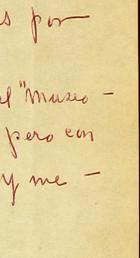 s por
el "museo-
pero con
y me -